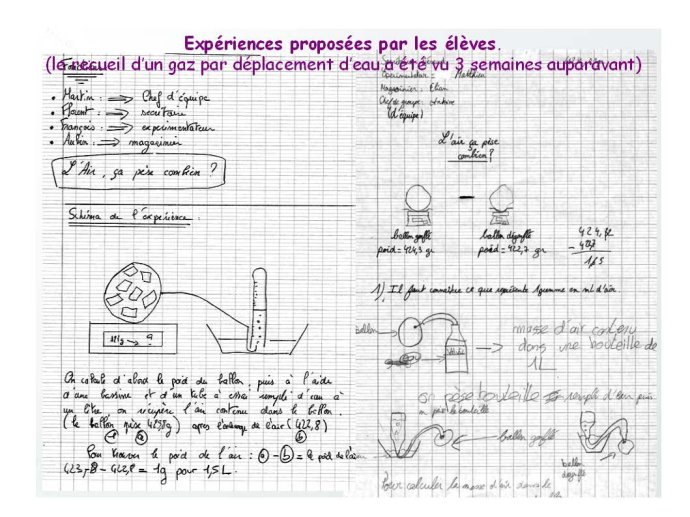 Expériences proposées par les élèves.
(le recueil d'un gaz par déplacement d'eau a été vu 3 semaines auparavant)
• Martin : ⟹ Chef d'équipe
• Florent : ⟹ secrétaire
• François : ⟹ experimentateur
• Aubin : ⟹ magasinier
L'Air, ça pèse combien ?
Schéma de l'expérience.
On calcule d'abord le poid du ballon, puis à l'aide
d'une bassine et d'un tube à essai rempli d'eau à
un litre, on récupère l'air contenu dans le ballon.
(le ballon pèse 423,8g) après l'
de l'air (422,8)
Pour trouver le poid de l'air : (a) - (b) = le poid de l'air
423,8 - 422,8 = 1g pour 1,5 L.
Matthieu
Magasinier : Elian
Chef de groupe : Antoine
(d'équipe)
L'air ça pèse
combien ?
ballon gonflé
poid = 424,3 gr
ballon dégonflé
poid = 422,7 gr
1) Il faut connaître ce que représente 1gramme en ml d'air.
ballon
masse d'air contenu
dans une bouteille de
1L
on pèse bouteille
rempli d'eau puis
on pese la bouteille
ballon gonflé
ballon
dégonflé
Pour calculer la masse d'air dans le